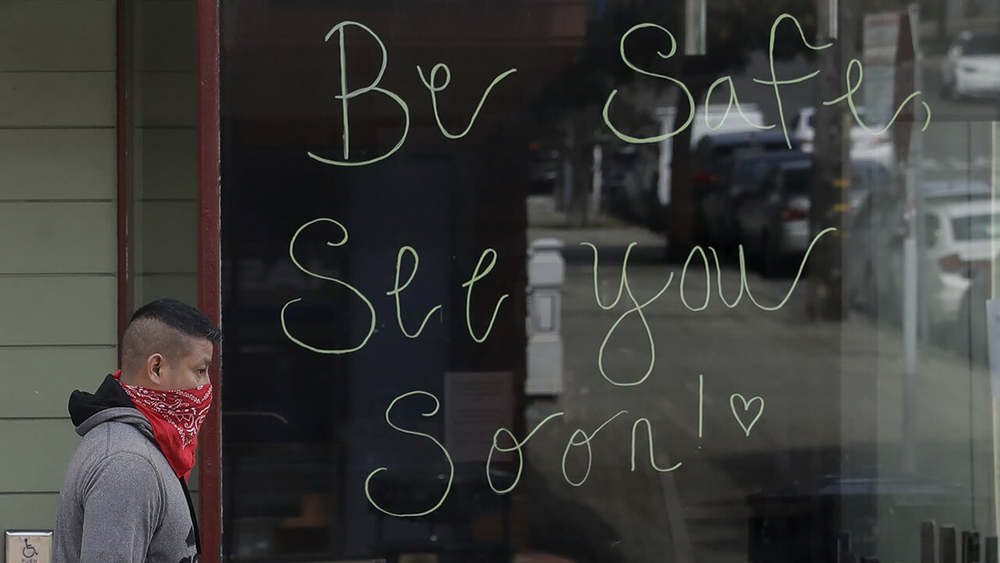 Be Safe,
See you
Soon! ♡